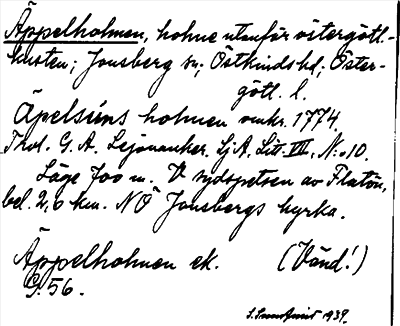 Äppelholmen, holme utanför östergötl.-
kusten; Jonsberg sn; Östkinds hd; Öster-
götl. l.
Äpelsüns holmen omkr. 1774.
Thol. G. A. Lejonanker. LjA, Litt. VII, N:o 10.
Läge 700 m. V sydspetsen av Flatön,
bel. 2,6 km. NÖ Jonsbergs kyrka.
Äppelholmen ek. (Vänd!)
G. 56.
1939.